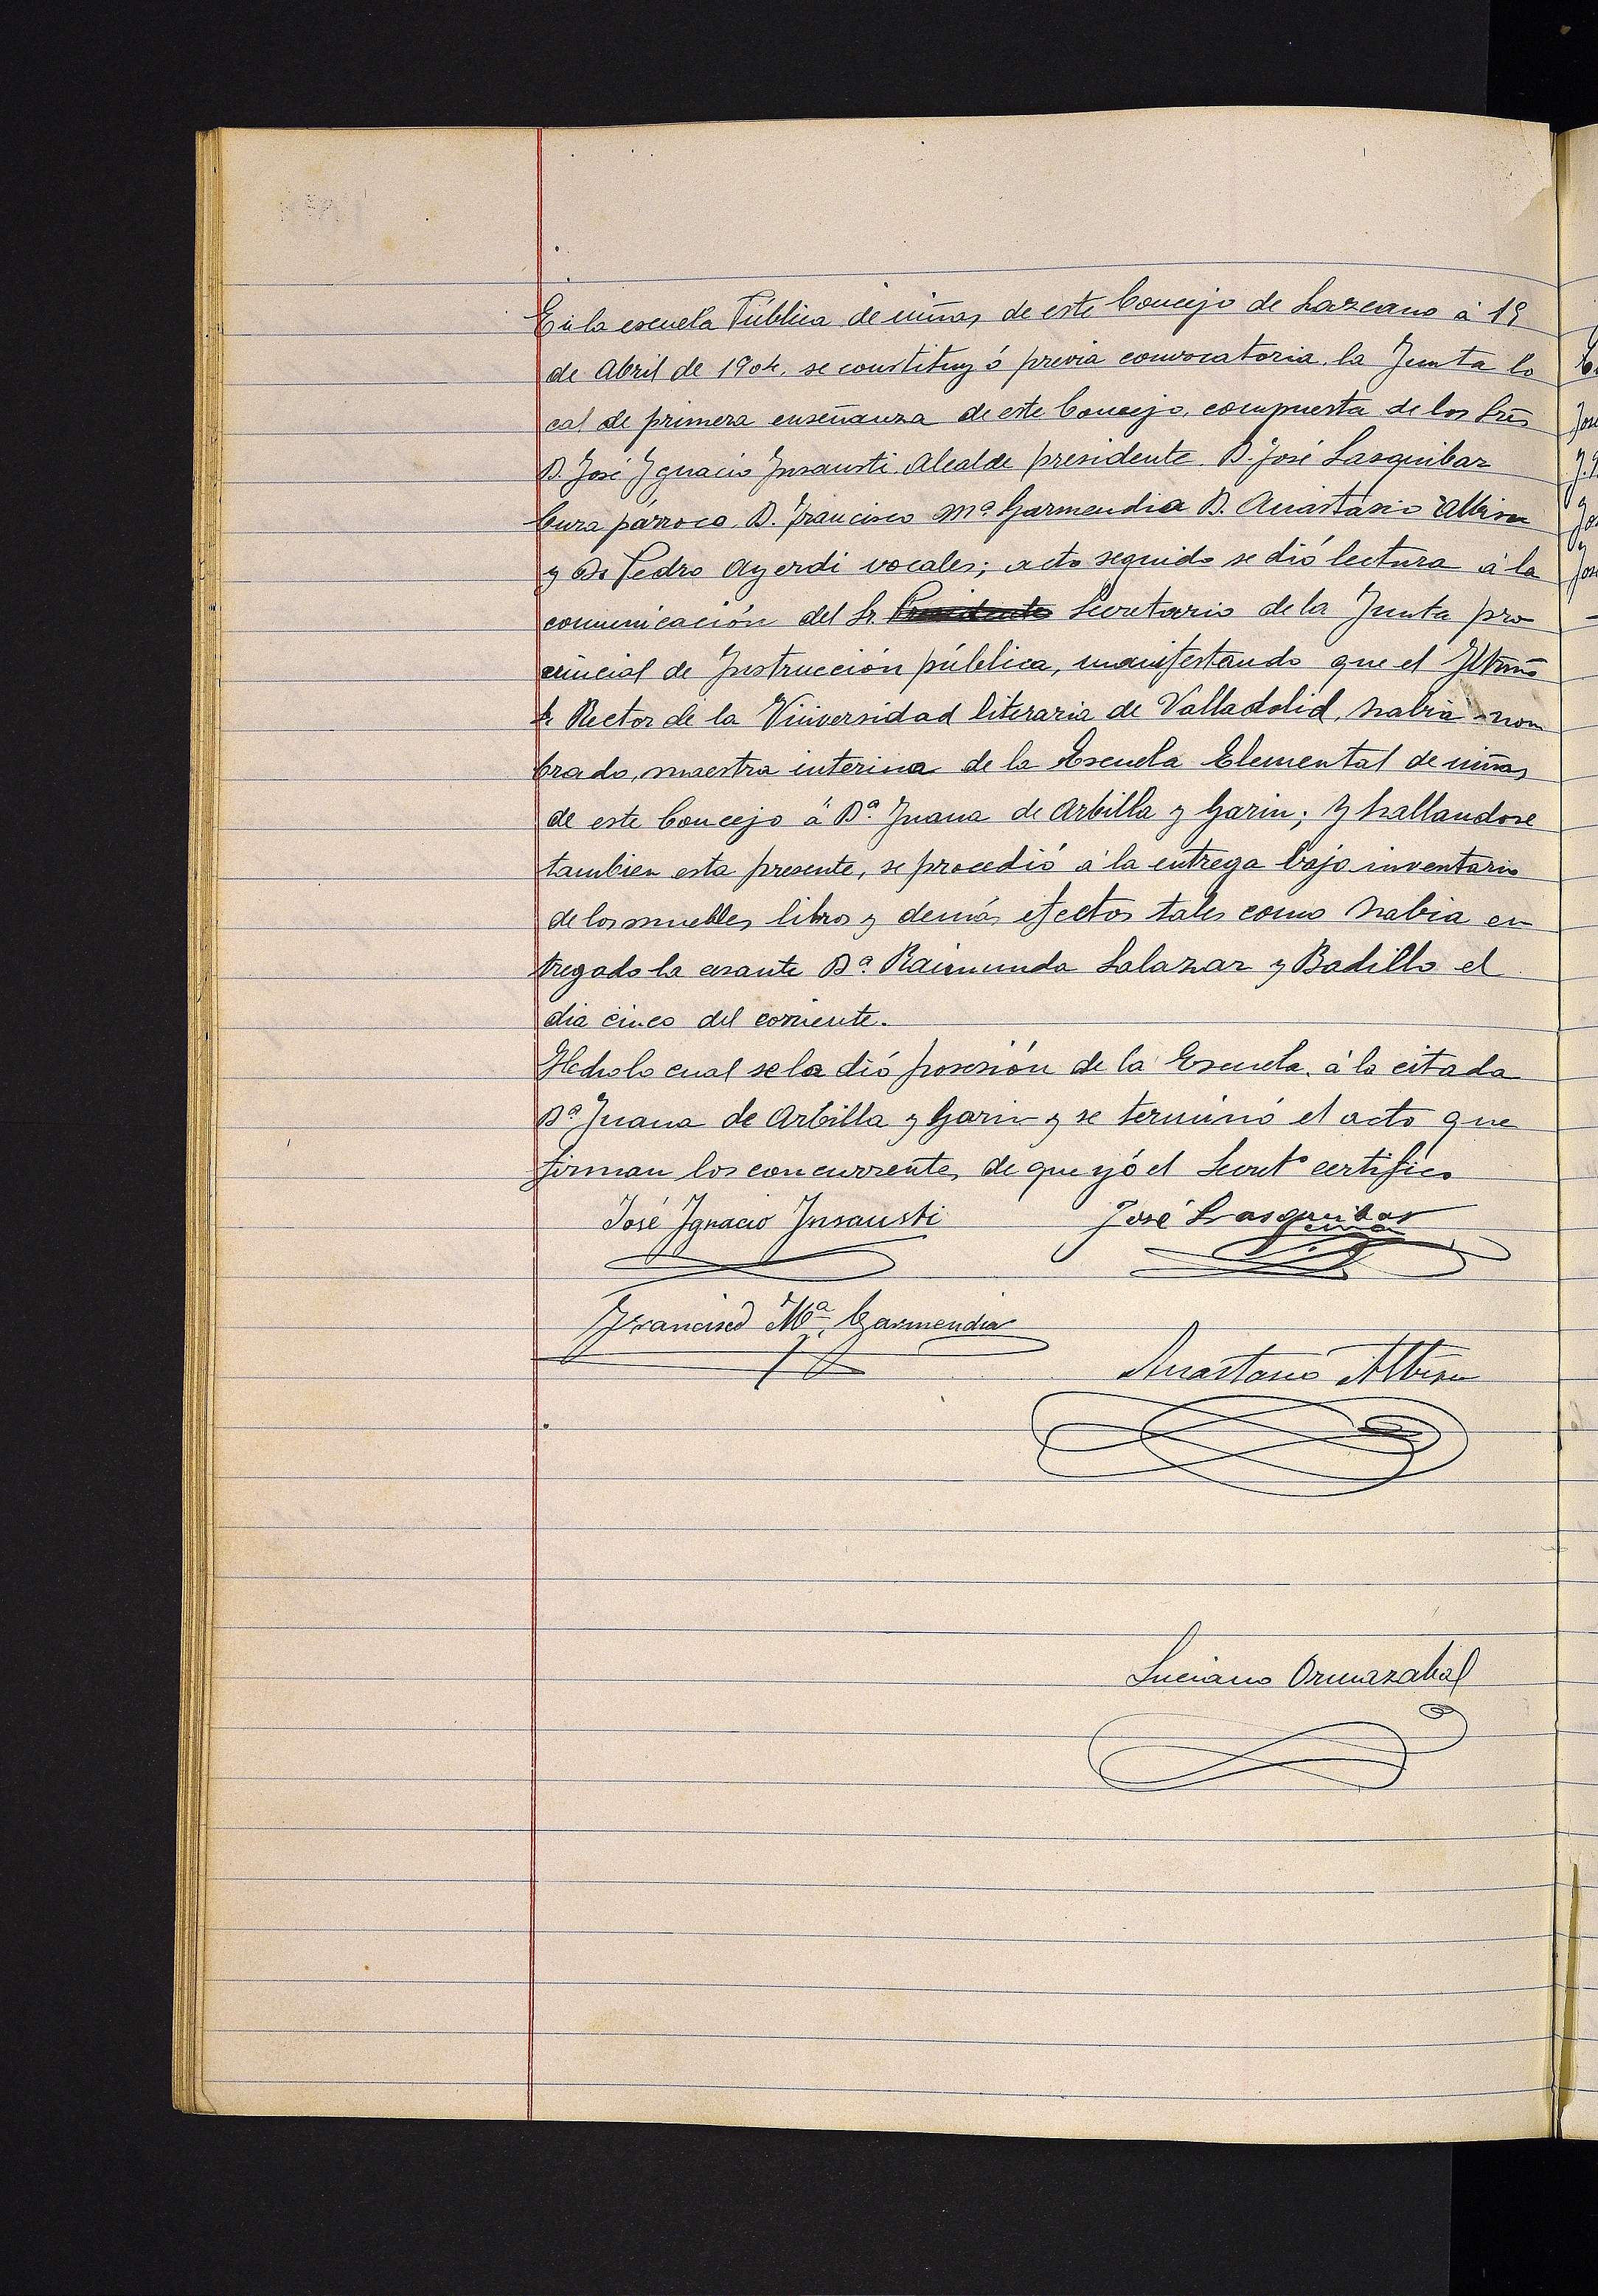 En la escuela Pública de niñas de este Concejo de Lazcano á 19
de Abril de 1904, se constituyó previa convocatoria, la Junta lo
cal de primera enseñanza de este Concejo, compuesta de los Srēs
D. José Ignacio Insausti Alcalde presidente D. José Lasquibar
Cura párroco, D. Francisco Mª Garmendia D. Anastásio Albisu
y D. Pedro Ayerdi vocales; acto seguido se dió lectura á la
comunicación del Sr. Presidente Secretario de la Junta pro
vincial de Instrucción pública, manifestando que el Iltmō
Sr Rector de la Universidad literaria de Valladolid, habia nom
brado, maestra interina de la Escuela Elemental de niñas
de este Concejo á Dª. Juana de Arbilla y Garin; Y hallandose
tambien esta presente, se procedió á la entrega bajo inventario
de los muebles, libros y demás efectos tales como habia en
tregado la cesante Dª. Raimunda Salazar y Badillo el
dia cinco del corriente.
Hecho lo cual se la dió posesión de la Escuela á la citada
Dª Juana de Arbilla y Garin y se terminó el acto que
firman los concurrentes, de que yó el Secretº certifico
José Ignacio Insausti José Lasquibar
Francisco Mª. Garmendia
Anastasio Albisu
Luciano Ormazabal